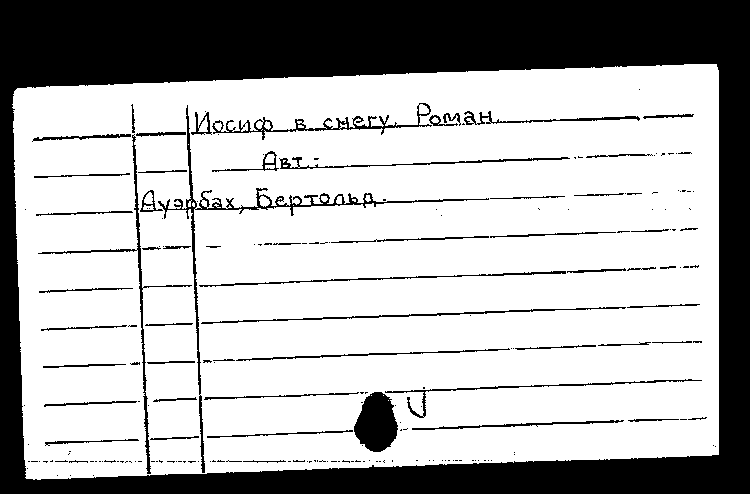 Иосиф в снегу. Роман.
Авт.:
Ауэрбах, Бертольд.